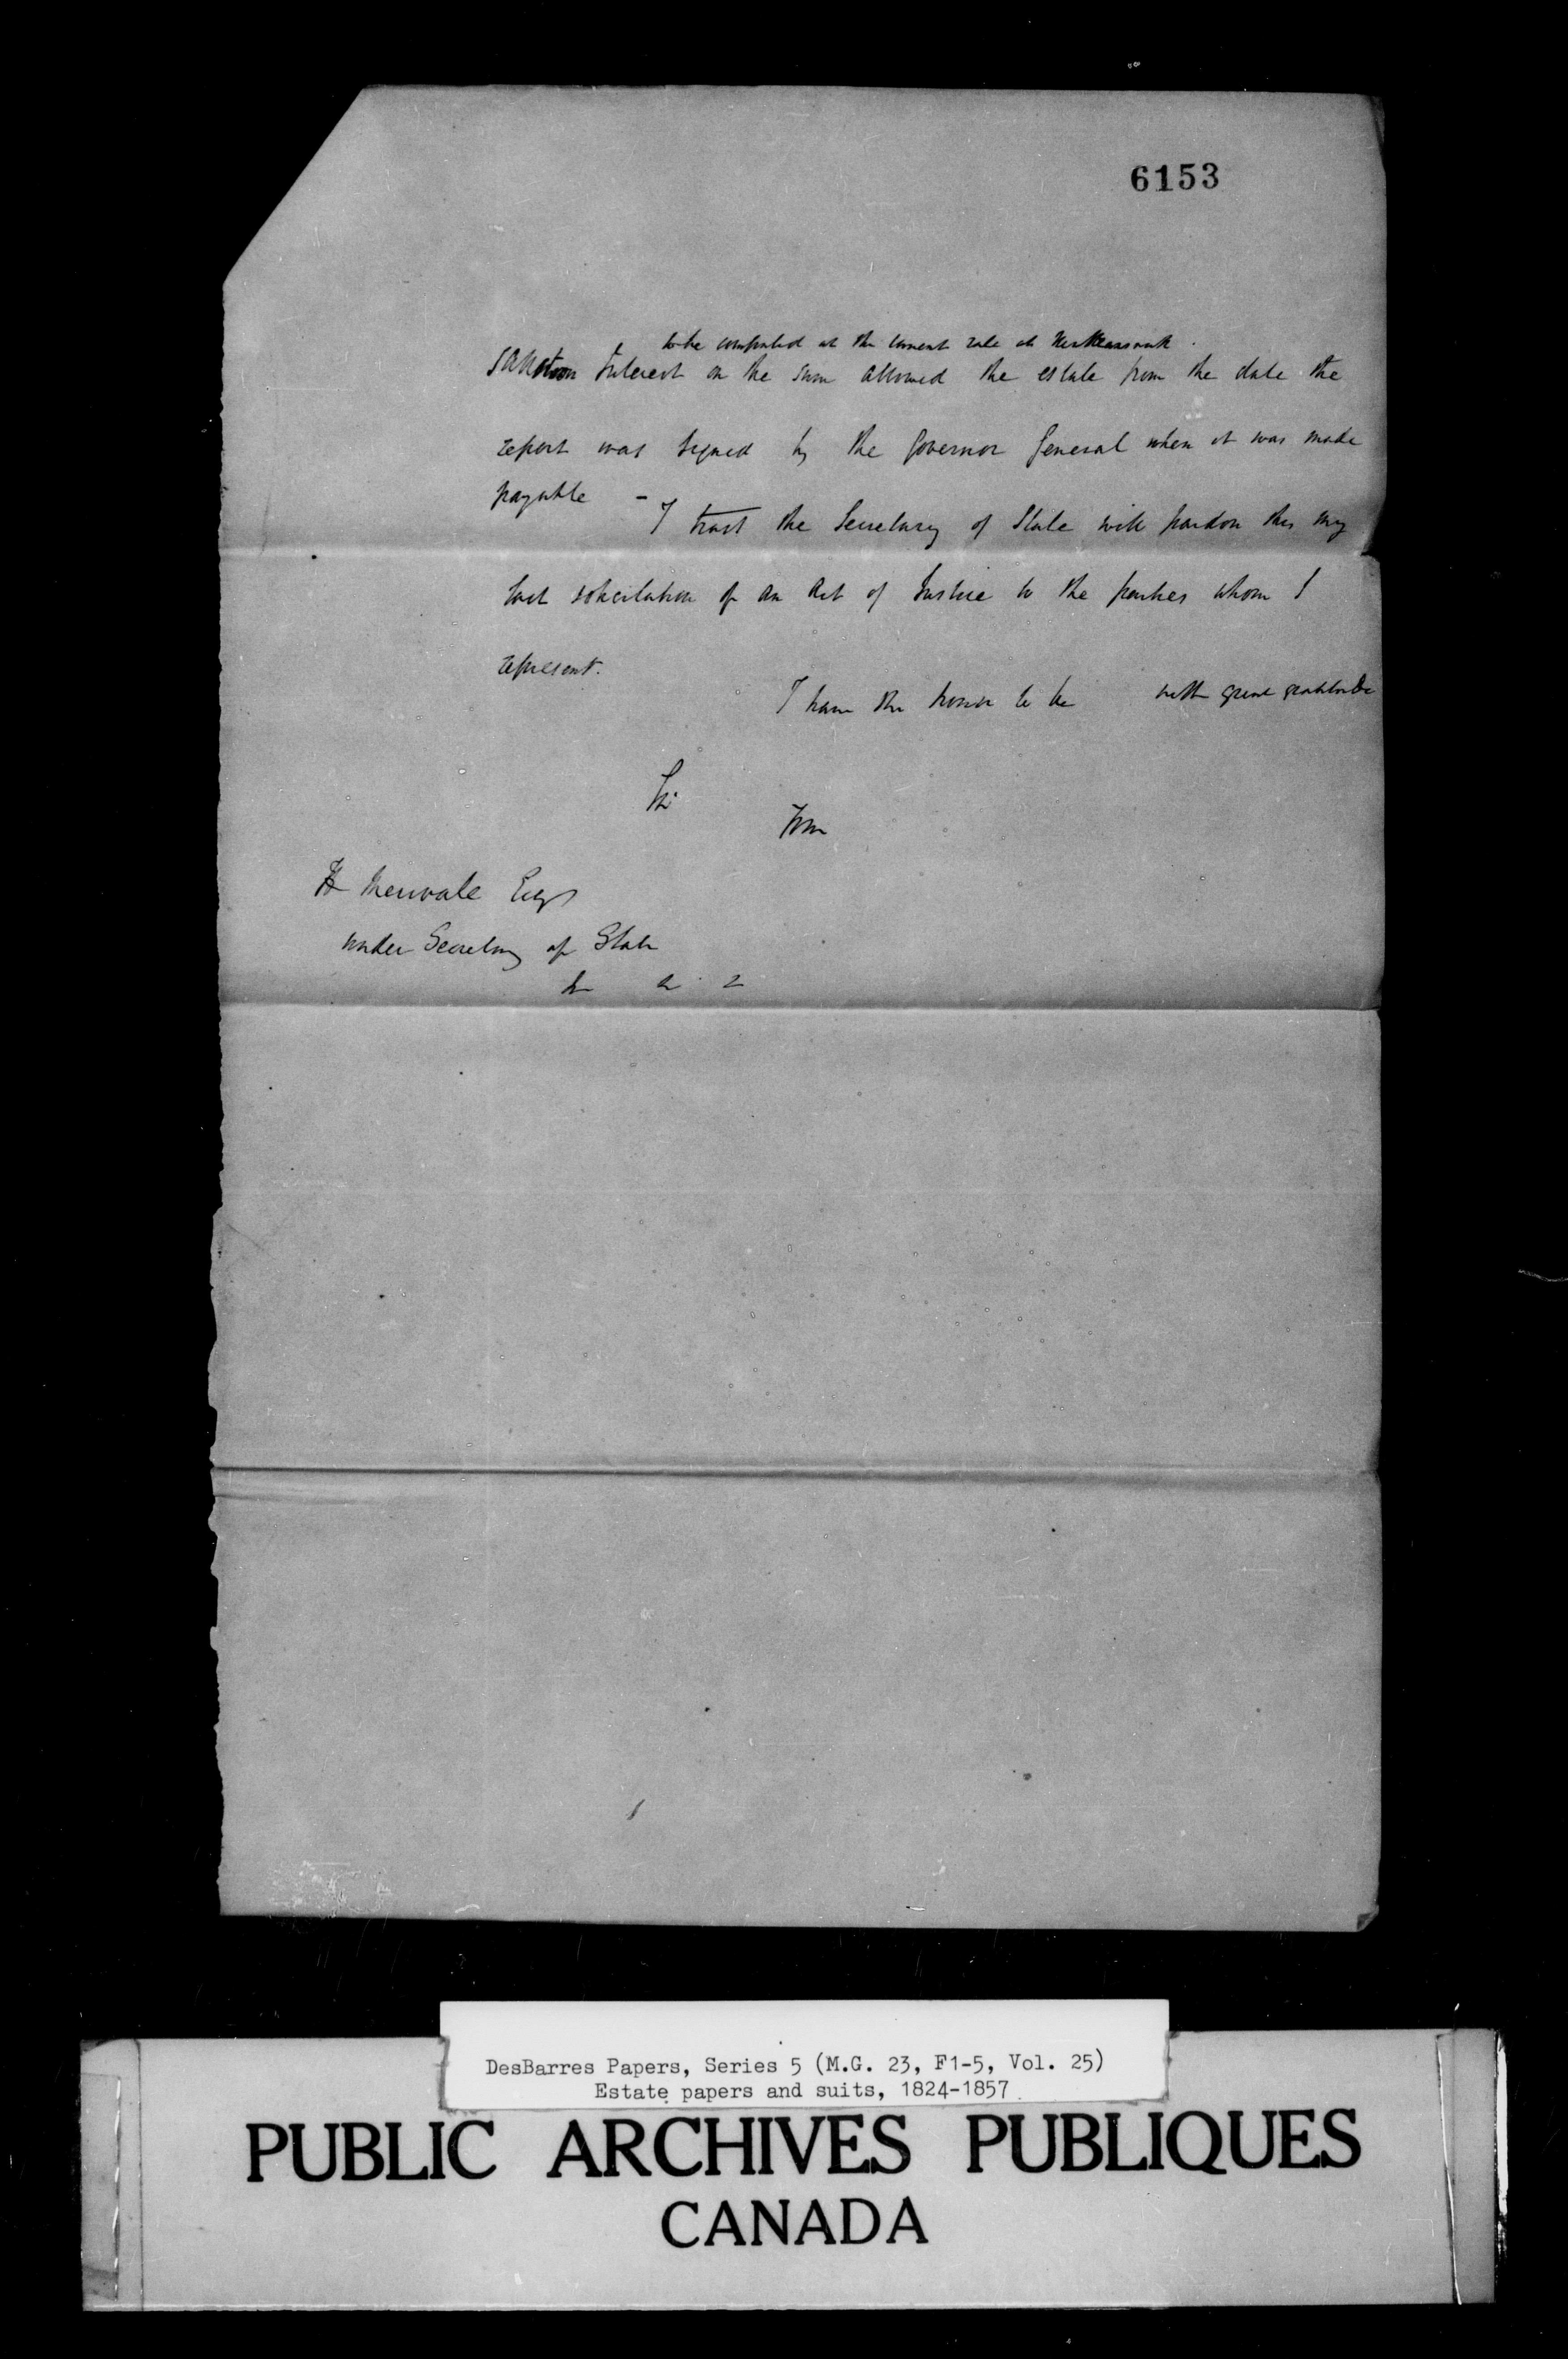 6153
to be computed at the current rate at
sanction Interest on the sum allowed the estate from the date the
report was signed by the Governor General when it was made
payable -
I trust the Secretary of State will pardon this my
last solicitation of an Act of Justice to the parties whom I
represent.
I have the honor to be with great gratitude
Sir
Your
H Merivale Esqr
under Secretary of State
DesBarres Papers, Series 5 (M.G. 23, F1-5, Vol. 25)
Estate papers and suits, 1824-1857
PUBLIC ARCHIVES PUBLIQUES
CANADA